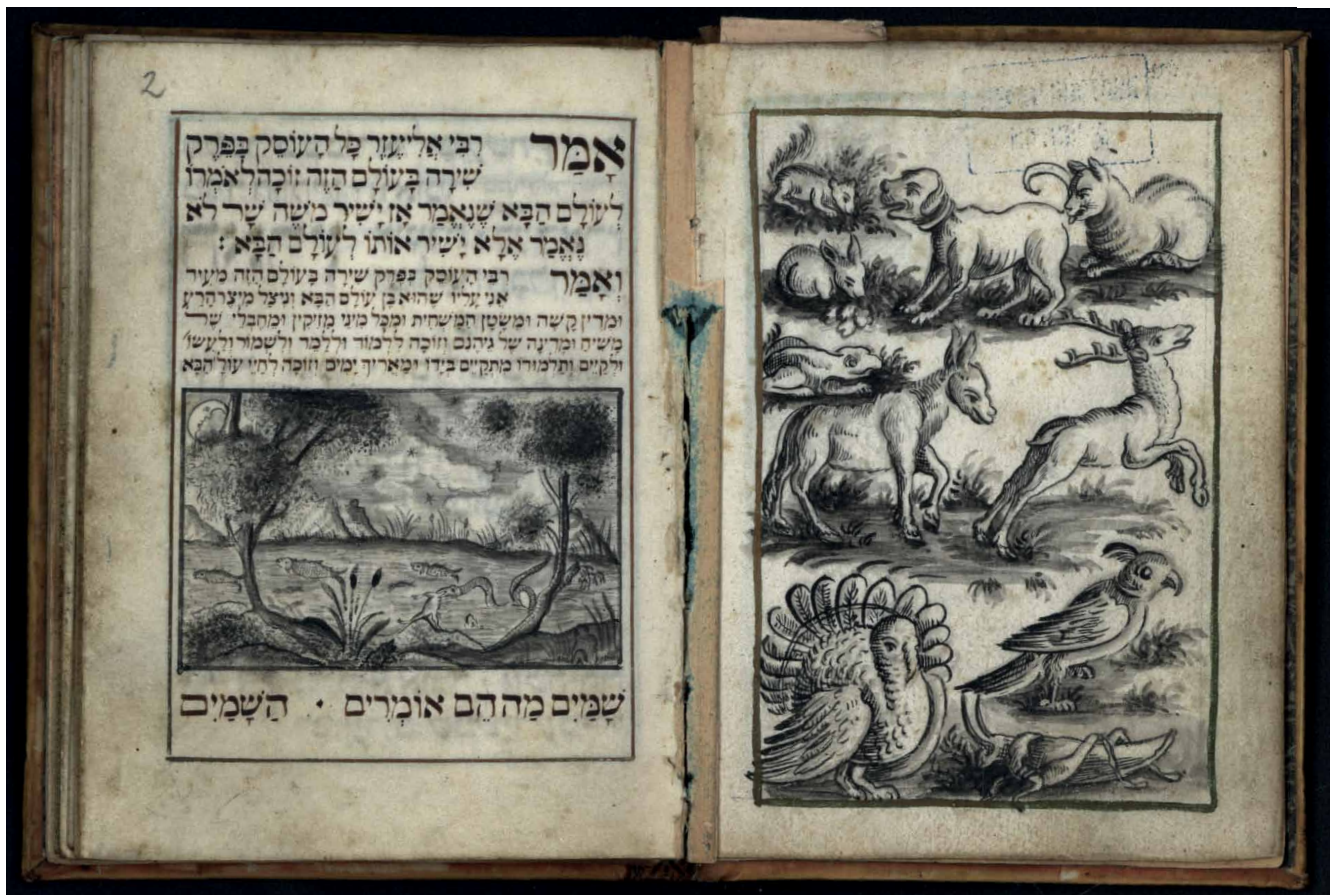 2
אָמַר רַבִּי אֱלִיעֶזֶר כָּל הָעוֹסֵק בְּפֵרֶק
שִׁירָה בָּעוֹלָם הַזֶּה זוֹכֶה לְאֹמְרוֹ
לְעוֹלָם הַבָּא שֶׁנֶּאֱמַר אָז יָשִׁיר מֹשֶׁה שָׁר לֹא
נֶאֱמַר אֶלָּא יָשִׁיר אוֹתוֹ לְעוֹלָם הַבָּא :
וְאָמַר רַבִּי הָעוֹסֵק בְּפֵרֶק שִׁירָה בָּעוֹלָם הַזֶּה מֵעִיד
אֲנִי עָלָיו שֶׁהוּא בֶּן עוֹלָם הַבָּא וְנִיצַּל מִיֵּצֶר הָרַע
וּמִדִּין קָשֶׁה וּמִשָּׂטָן הַמַּשְׁחִית וּמִכָּל מִינֵי מַזִּיקִין וּמֵחֶבְלֵי שֶׁל
מָשִׁיחַ וּמִדִּינָהּ שֶׁל גֵּיהִנָּם וְזוֹכֶה לִלְמוֹד וּלְלַמֵּד וְלִשְׁמוֹר וְלַעֲשׂוֹ'
וּלְקַיֵּים וְתַלְמוּדוֹ מִתְקַיֵּים בְּיָדוֹ וּמַאֲרִיךְ יָמִים וְזוֹכֶה לְחַיֵּי עוֹל' הַבָּא
שָׁמַיִם מַה הֵם אוֹמְרִים · הַשָּׁמַיִם